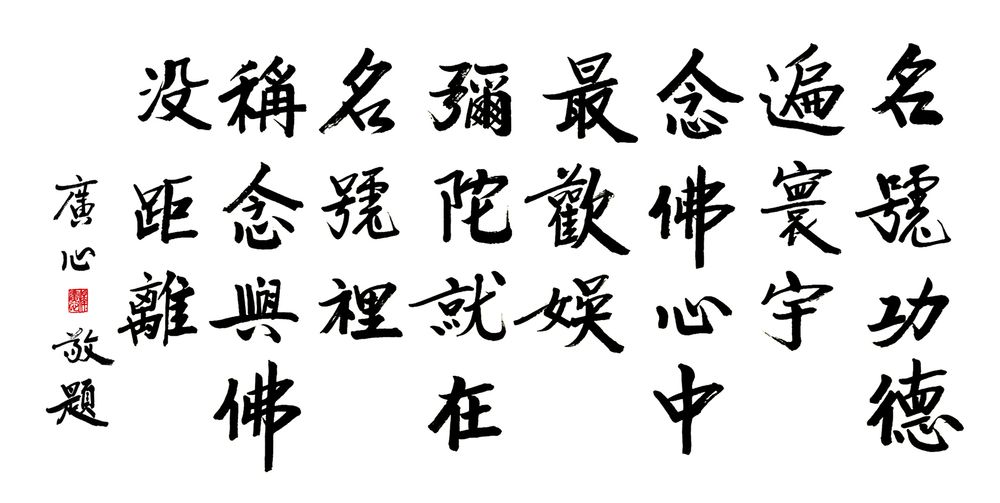 名號功德
遍寰宇
念佛心中
最歡娛
彌陀就在
名號裡
稱念與佛
没距離
廣心
敬題